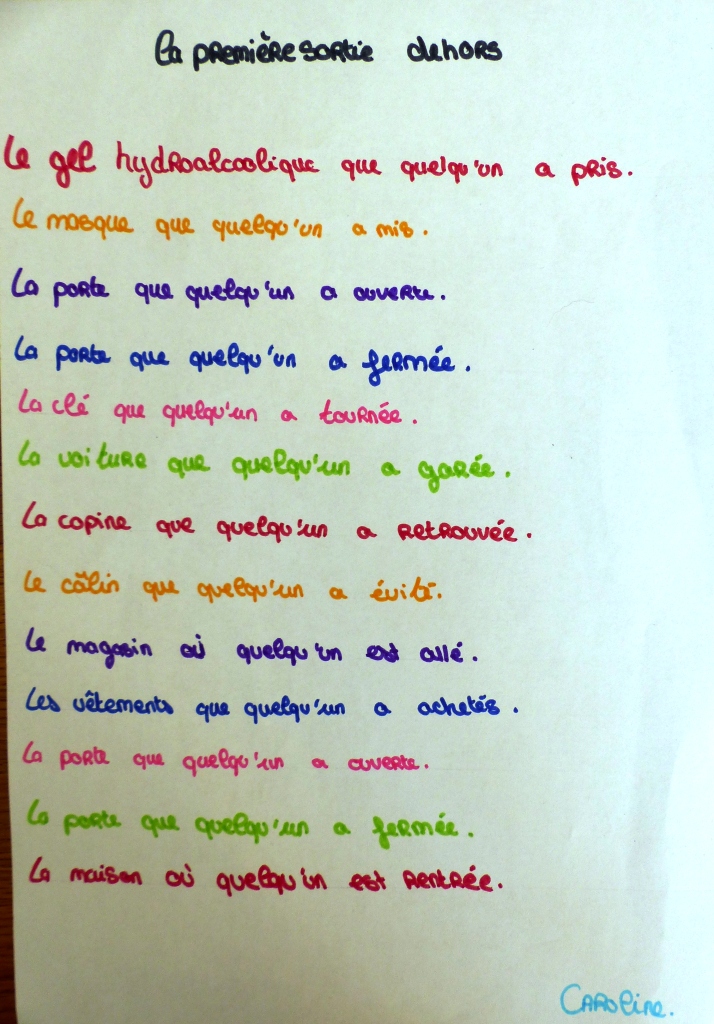 La première sortie dehors
Le gel hydroalcoolique que quelqu'un a pris.
Le masque que quelqu'un a mis.
La porte que quelqu'un a ouverte.
La porte que quelqu'un a fermée.
La clé que quelqu'un a tournée.
La voiture que quelqu'un a garée.
La copine que quelqu'un a retrouvée.
Le câlin que quelqu'un a évité.
Le magasin où quelqu'un est allé.
Les vêtements que quelqu'un a achetés.
La porte que quelqu'un a ouverte.
La porte que quelqu'un a fermée.
La maison où quelqu'un est rentrée.
Caroline.